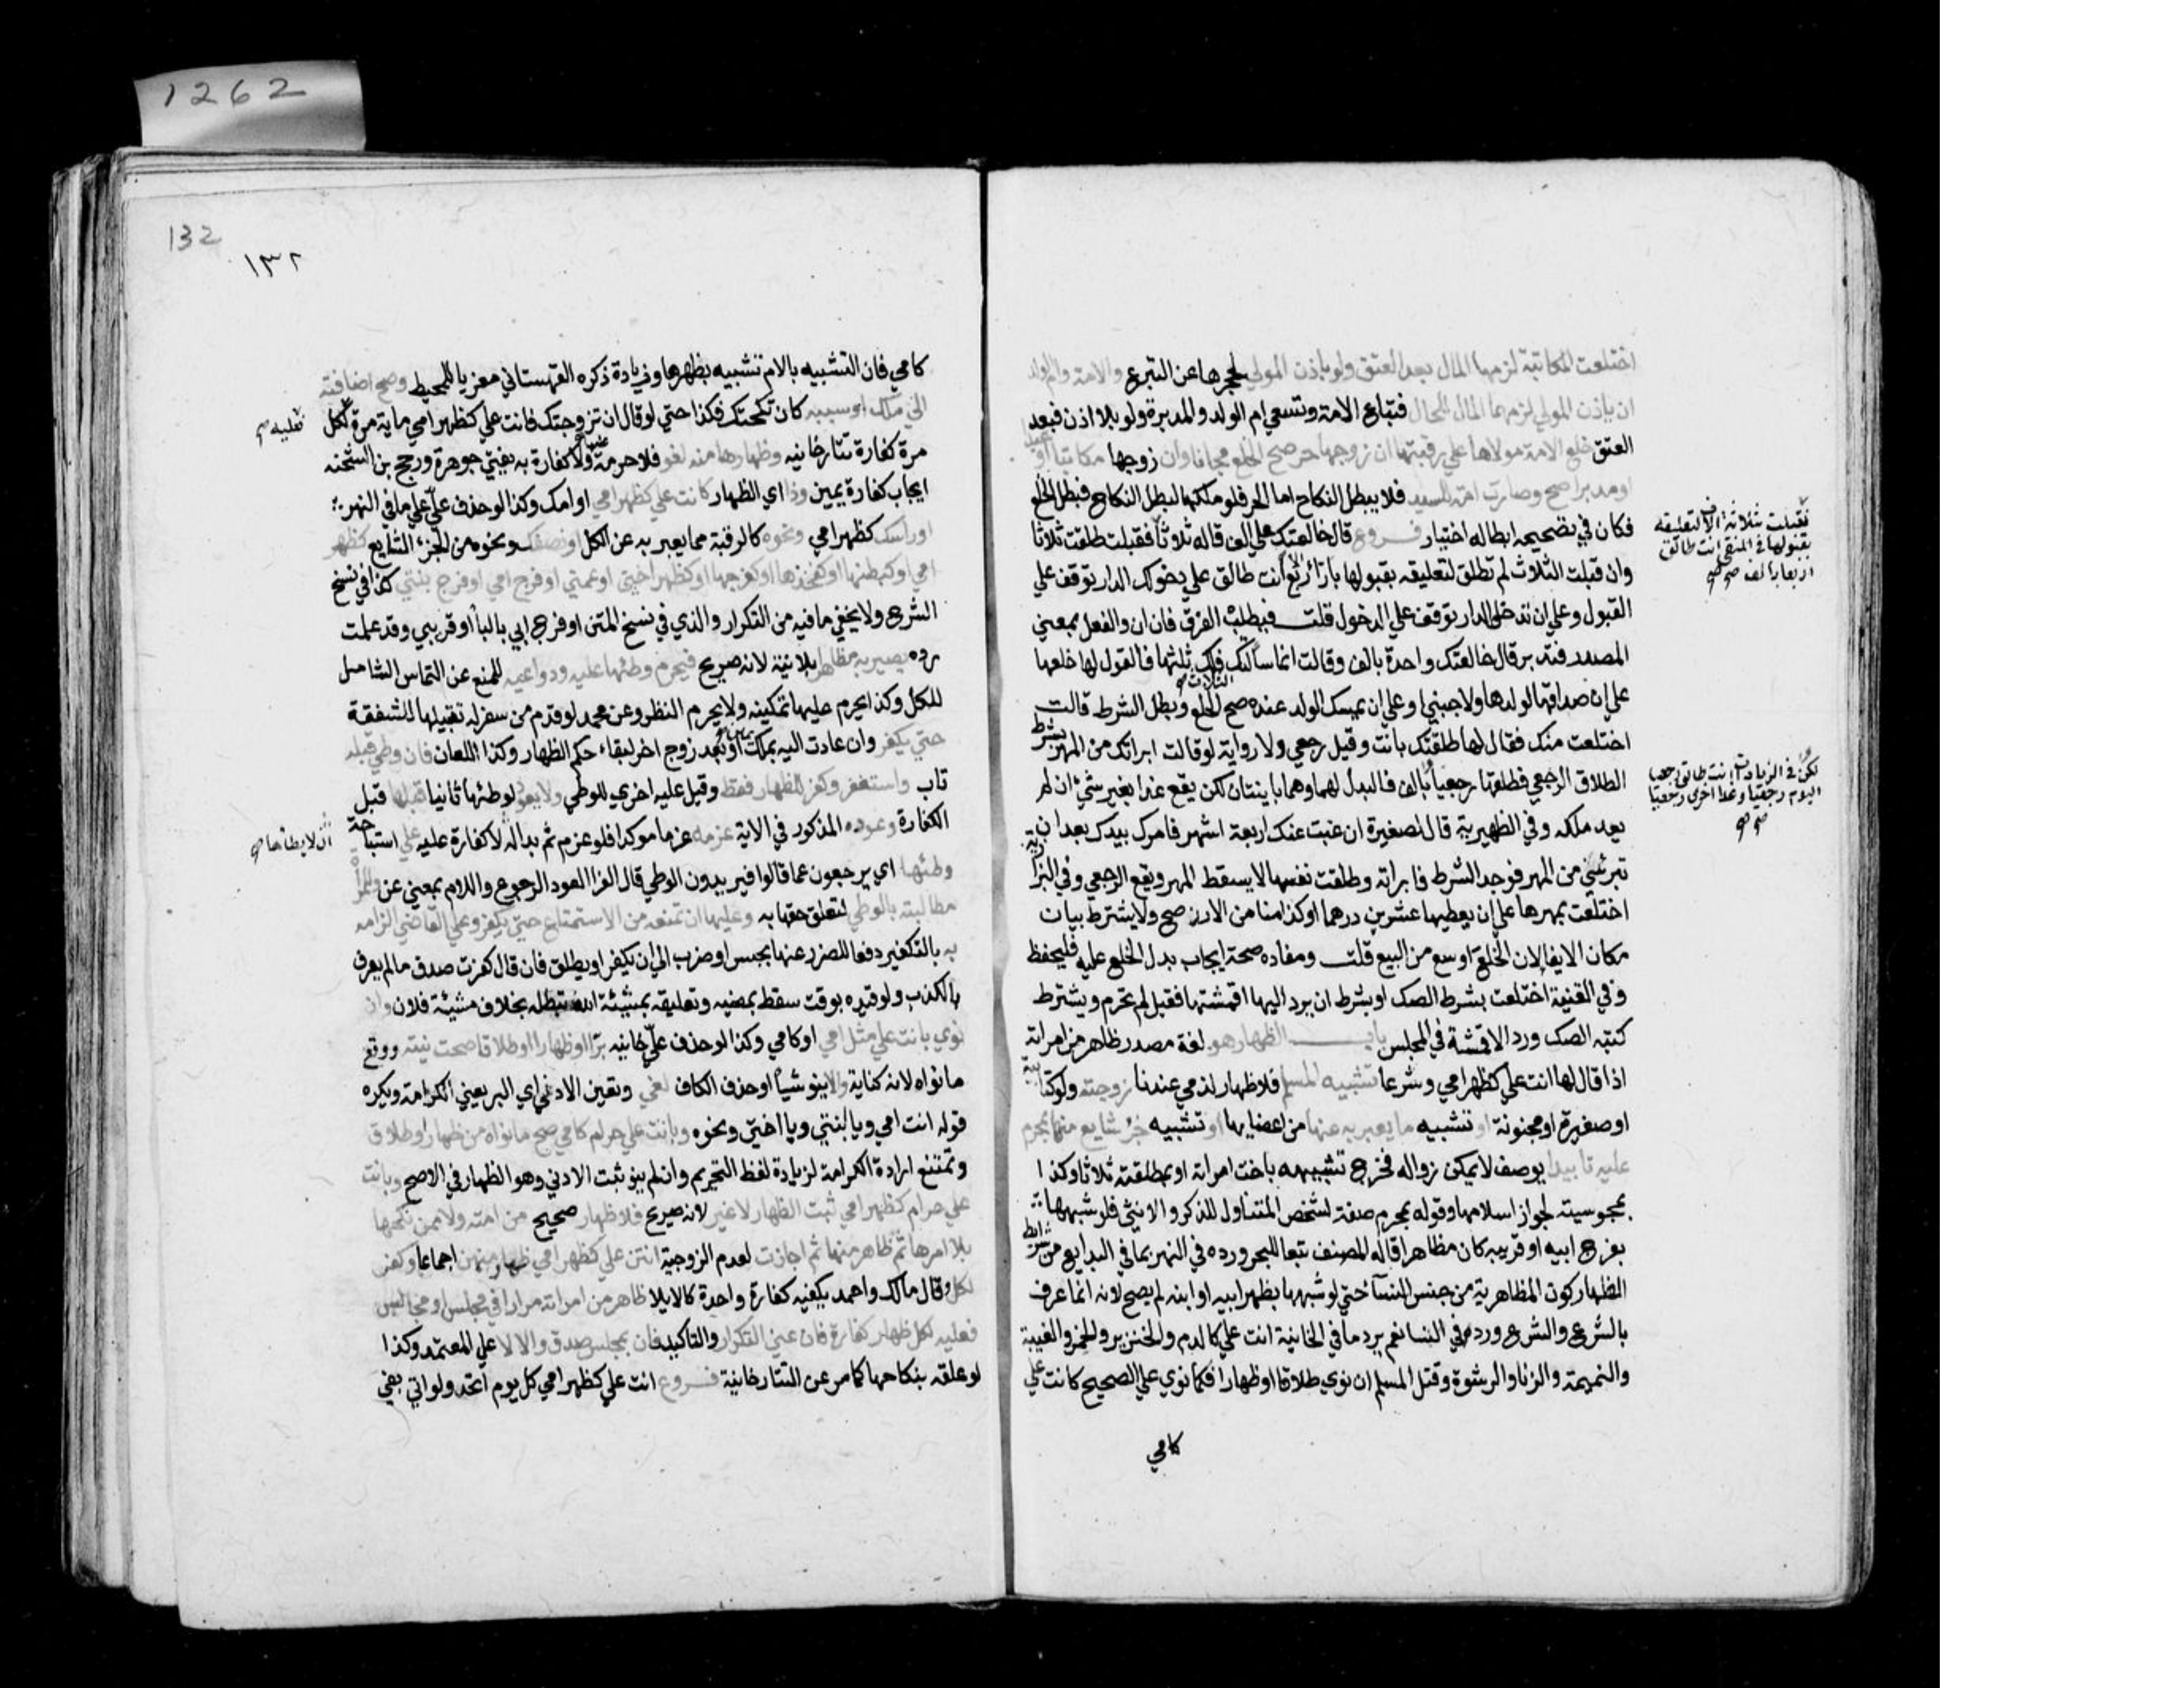 1262
اختلعت المكاتبة لزمها المال بعد العتق ولو باذن المولي لحجرها عن التبرع والامة وام الولد
ان باذن المولي لزمهما المال للحال فتباع الامة وتسعي ام الولد والمدبرة ولو بلا اذن فبعد
العتق خلع الامة مولاها علي رقبتها ان زوجها حر صح الخلع مجانا وان زوجها مكاتبا او عبدا
او مدبرا صح وصارت امة للسيد فلا يبطل النكاح اما الحر فلو ملكها لبطل النكاح فبطل الخلع
فكان في تصحيحه ابطاله اختيار فروع قال خالعتك علي الف قاله ثلاثا فقبلت طلقت ثلاثا
فقبلت ثلاثة الاف لتعليقه
بقبولها في المنتقي انت طالق
اربعا بالف صح
وان قبلت الثلاث لم تطلق لتعليقه بقبولها بازاء اربع انت طالق علي دخولك الدار توقف علي
القبول وعلي ان تدخلي الدار توقف علي الدخول قلت فيطلب الفرق فان ان والفعل بمعني
المصدر فتدبر قال خالعتك واحدة بالف وقالت انما سالتك الثلاث فلك ثلثها فالقول لها خلعها
علي ان صداقها لولدها ولاجنبي او علي ان يمسك الولد عنده صح الخلع وبطل الشرط قالت
اختلعت منك فقال لها طلقتك بانت وقيل رجعي ولا رواية لو قالت ابراتك من المهر بشرط
الطلاق الرجعي فطلقها رجعيا بالف فالبدل لهما وهما باينتان لكن يقع غدا بغير شيء ان لم
لكن في الزيادات انت طالق
اليوم رجعيا وغدا اخري رجعيا
صح
يعد ملكه وفي الظهيرية قال لصغيرة ان غبت عنك اربعة اشهر فامرك بيدك بعد ان
تبرئيني من المهر فوجد الشرط فابراته وطلقت نفسها لا يسقط المهر ويقع الرجعي وفي البزازية
اختلعت بمهرها علي ان يعطيها عشرين درهما او كذا منا من الارز صح ولا يشترط بيان
مكان الايفا لان الخلع اوسع من البيع قلت ومفاده صحة ايجاب بدل الخلع عليه فليحفظ
وفي القنية اختلعت بشرط الصك او بشرط ان يرد اليها اقمشتها فقبل لم تحرم ويشترط
كتبه الصك ورد الاقمشة في المجلس باب الظهار هو لغة مصدر ظاهر من امراته
اذا قال لها انت علي كظهر امي وشرعا تشبيه المسلم فلا ظهار لذمي عندنا زوجته ولو كتابية
او صغيرة او مجنونة او تشبيه ما يعبر به عنها من اعضايها او تشبيه جزء شايع منها بمحرم
عليه تابيدا بوصف لا يمكن زواله فخرج تشبيهه باخت امراته او بمطلقته ثلاثا وكذا
بمجوسية لجواز اسلامها وقوله بمحرم صفة لشخص المتناول للذكر والانثي فلو شبهها
بفرج ابيه او قريبه كان مظاهرا قاله المصنف تبعا للبحر ورده في النهر بما في البدايع من شرايط
الظهار كون المظاهر به من جنس النسآ حتي لو شبهها بظهر ابيه او ابنه لم يصح لانه انما عرف
بالشرع والشرع ورد في النسا نعم يرد ما في الخانية انت علي كالدم والخنزير والخمر والغيبة
والنميمة والزنا والرشوة وقتل المسلم ان نوي طلاقا او ظهارا فكما نوي علي الصحيح كانت علي
كامي
132
١٣٢
كامي فان التشبيه بالام تشبيه بظهرها وزيادة ذكره القهستاني معزيا للمحيط وصح اضافته
الي ملك او سببه كان نكحتك فكذا حتي لو قال ان تزوجتك فانت علي كظهر امي ماية مرة لكل
فعليه صح
مرة كفارة تتارخانيه وظهارها منه لغو فلا حرمة عليها ولا كفارة به يفتي جوهرة ورجح بن الشحنه
ايجاب كفارة يمين وذا اي الظهار كانت علي كظهر امي او امك وكذا لو حذف علي علي ما في النهر
او راسك كظهر امي ونحوه كالرقبة مما يعبر به عن الكل او نصفك ونحوه من الجزء الشايع كظهر
امي او كبطنها او كفخذها او كفرجها او كظهر اختي او عمتي او فرج امي او فرج بنتي كذا في نسخ
الشرع ولا يخفي ما فيه من التكرار والذي في نسخ المتن او فرج ابي بالبا او قريبي وقد علمت
رده يصير به مظاهرا بلا نية لانه صريح فيحرم وطئها عليه ودواعيه للمنع عن التماس الشامل
للكل وكذا يحرم عليها تمكينه ولا يحرم النظر وعن محمد لو قدم من سفر له تقبيلها للشفقة
حتي يكفر وان عادت اليه بملك يمين او بعد زوج اخر لبقاء حكم الظهار وكذا اللعان فان وطي قبله
تاب واستغفر وكفر للظهار فقط وقيل عليه اخري للوطي ولا يعود لوطئها ثانيا قبلها قبل
الكفارة وعوده المذكور في الاية عزمه عزما موكدا فلو عزم ثم بدا له لا كفارة عليه علي استباحة
ان لا يطاها صح
وطئها اي يرجعون عما قالوا فيريدون الوطي قال الفرا العود الرجوع واللام بمعني عن وللمراة
مطالبته بالوطي لتعلق حقها به وعليها ان تمنعه من الاستمتاع حتي يكفر وعلي القاضي الزامه
به بالتكفير دفعا للضرر عنها بحبس او ضرب الي ان يكفر او يطلق فان قال كفرت صدق ما لم يعرف
بالكذب ولو قيده بوقت سقط بمضيه وتعليقه بمشيئة الله تبطله بخلاف مشيئة فلان وان
نوي بانت علي مثل امي او كامي وكذا لو حذف علي خانيه برا او ظهارا او طلاقا صحت نيته ووقع
ما نواه لانه كناية والا ينو شيا او حذف الكاف لغي وتعين الادني اي البر يعني الكرامة ويكره
قوله انت امي ويا بنتي ويا اختي ونحوه وبانت علي حرام كامي صح ما نواه من ظهار او طلاق
وتمتنع ارادة الكرامة لزيادة لفظ التحريم وان لم ينو ثبت الادني وهو الظهار في الاصح وبانت
علي حرام كظهر امي ثبت الظهار لا غير لانه صريح فلا ظهار صحيح من امته ولا ممن نكحها
بلا امرها ثم ظاهر منها ثم اجازت لعدم الزوجية انتن علي كظهر امي ظهار منهن اجماعا وكفر
لكل وقال مالك واحمد يكفيه كفارة واحدة كالايلا ظاهر من امراته مرارا في مجلس او مجالس
فعليه لكل ظهار كفارة فان عني التكرار والتاكيد فان بمجلس صدق والا لا علي المعتمد وكذا
لو علقه بنكاحها كما مر عن التتارخانية فروع انت علي كظهر امي كل يوم اتحد ولو اتي بفي